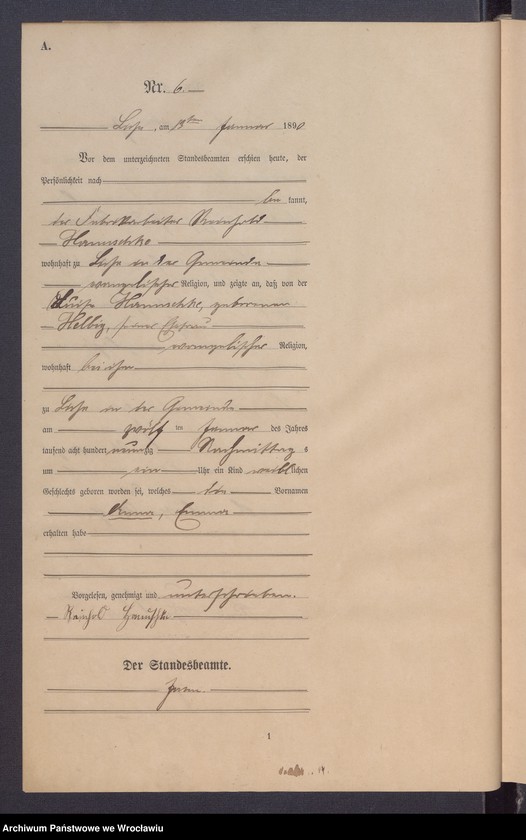 A.
Nr. 6.
am 13ten Januar 1890
Vor dem unterzeichneten Standesbeamten erschien heute, der
Persönlichkeit nach
be kannt,
der Fabrikarbeiter Reinhold
Hanuschke
wohnhaft zu in der Gemeinde
evangelischer Religion, und zeigte an, daß von der
Luise Hanuschke, geborenen
Helbig, seiner Ehefrau
evangelischer Religion,
wohnhaft bei ihm
zu in der Gemeinde
am zwölf ten Januar des Jahres
tausend acht hundert neunzig Nachmittag s
um ein Uhr ein Kind weiblichen
Geschlechts geboren worden sei, welches die Vornamen
Anna, Emma
erhalten habe
Vorgelesen, genehmigt und unterschrieben.
Reinhold Hanuschke
Der Standesbeamte.
1
Archiwum Państwowe we Wrocławiu